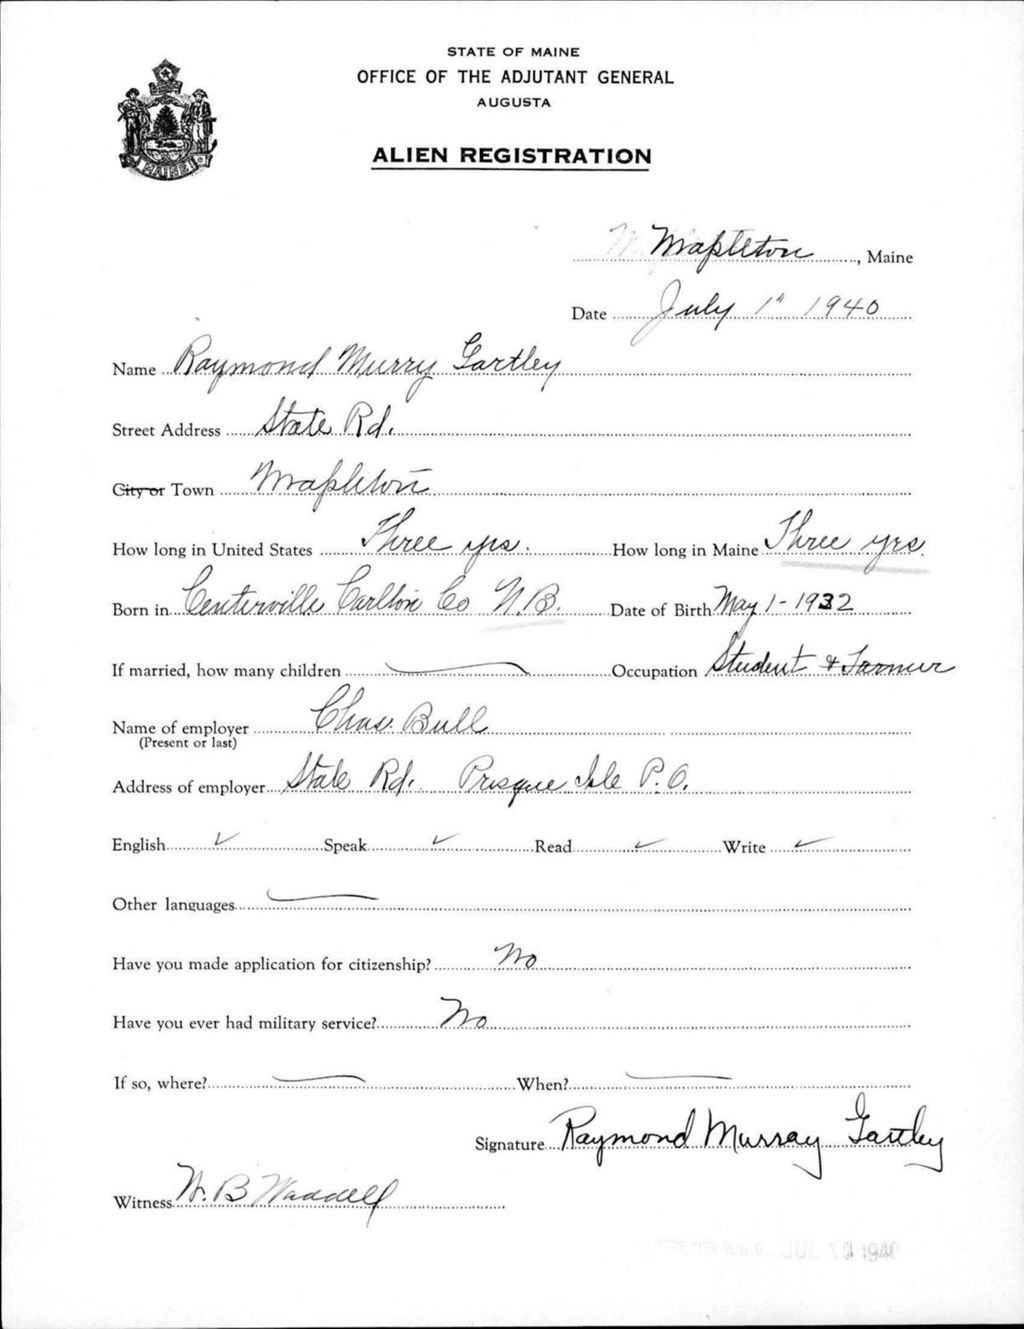 STATE OF MAINE
OFFICE OF THE ADJUTANT GENERAL
AUGUSTA
ALIEN REGISTRATION
MAINE
Mapleton, Maine
Date July 1" 1940
Name Raymond Murry Gartley
Street Address State Rd.
City or Town Mapleton
How long in United States Three yrs. How long in Maine Three yrs.
Born in Centerville Carlton Co N.B. Date of Birth May 1-1932
If married, how many children Occupation Student & Farmer
Name of employer Chas. Bull
(Present or last)
Address of employer State Rd. Presque Isle P.O.
English ✓ Speak ✓ Read ✓ Write ✓
Other languages
Have you made application for citizenship? No
Have you ever had military service? No
If so, where? When?
Signature Raymond Murray Gartley
Witness W. B Waddell
JUL 1940